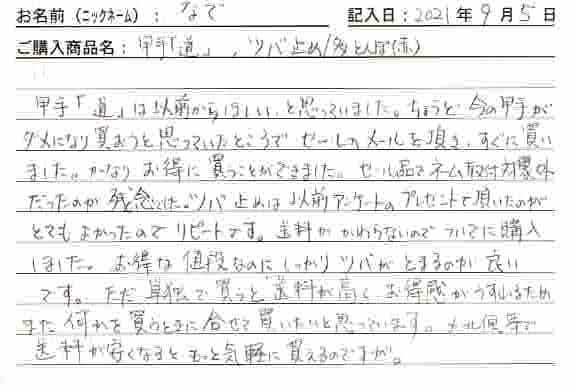 お名前（ニックネーム）： なで 記入日：2021年9月5日
ご購入商品名：甲手「道」，ツバ止め/多とんぼ(赤)
甲手「道」は以前からほしいと思っていました。ちょうど今の甲手が
ダメになり買おうと思っていたところで、セールのメールを頂き、すぐに買い
ました。かなりお得に買うことができました。セール品でネーム取付対象外
だったのが残念でした。ツバ止めは以前アンケートのプレゼントで頂いたのが
とてもよかったのでリピートです。送料がかわらないのでついでに購入
しました。お得な値段なのにしっかりツバがとまるのが良い
です。ただ単価で買うと送料が高く、お得感がうすれるため
また何かを買うときに合せて買いたいと思っています。メール便等で
送料が安くなるともっと気軽に買えるのですが。